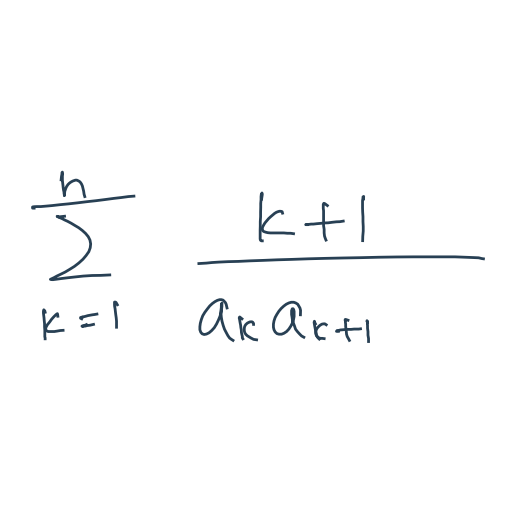 \sum_{k=1}^{n} \frac{k+1}{a_k a_{k+1}}